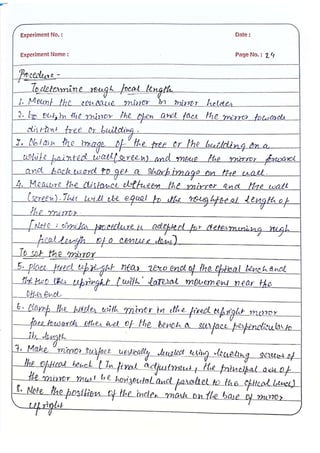 Experiment No. : Date :
Experiment Name : Page No. : 24
Procedure -
To determine rough focal length
1. Mount the concave mirror in mirror holder
2. in the mirror the open and face the mirror towards
distant tree or building.
3. Obtain the image of the tree or the building on a
white painted wall (screen) and move the mirror forward
and backword to get a sharp image on the wall.
4. Measure the distance between the mirror and the wall
(screen). This will be equal to the rough focal length of
the mirror
[Note : similar procedure is adopted for determining rough
focal length of a convex lens)
To set the mirror
5. place fixed upright near zero end of the optical bench and
the two upright (with lateral movement near the
other end.
6. Clamp the holder with mirror in the fixed upright mirror
face towards other end of the bench a surface perpendicular to
its length
7. Make mirror surface vertically using levelling screw of
the optical bench (In final adjustment, the principal axis of
the mirror must be horizontal and parallel to the optical bench)
8. Note the position of the index mark on the base of mirror
upright